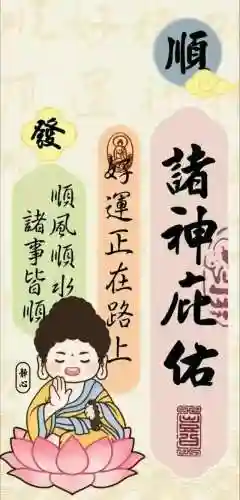 順
諸神庇佑
好運正在路上
發
順風順水
諸事皆順
靜心